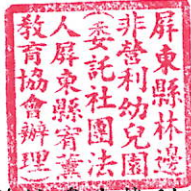 屏東縣林邊
非營利幼兒園
(委託社團法
人屏東縣宥薰
教育協會辦理)